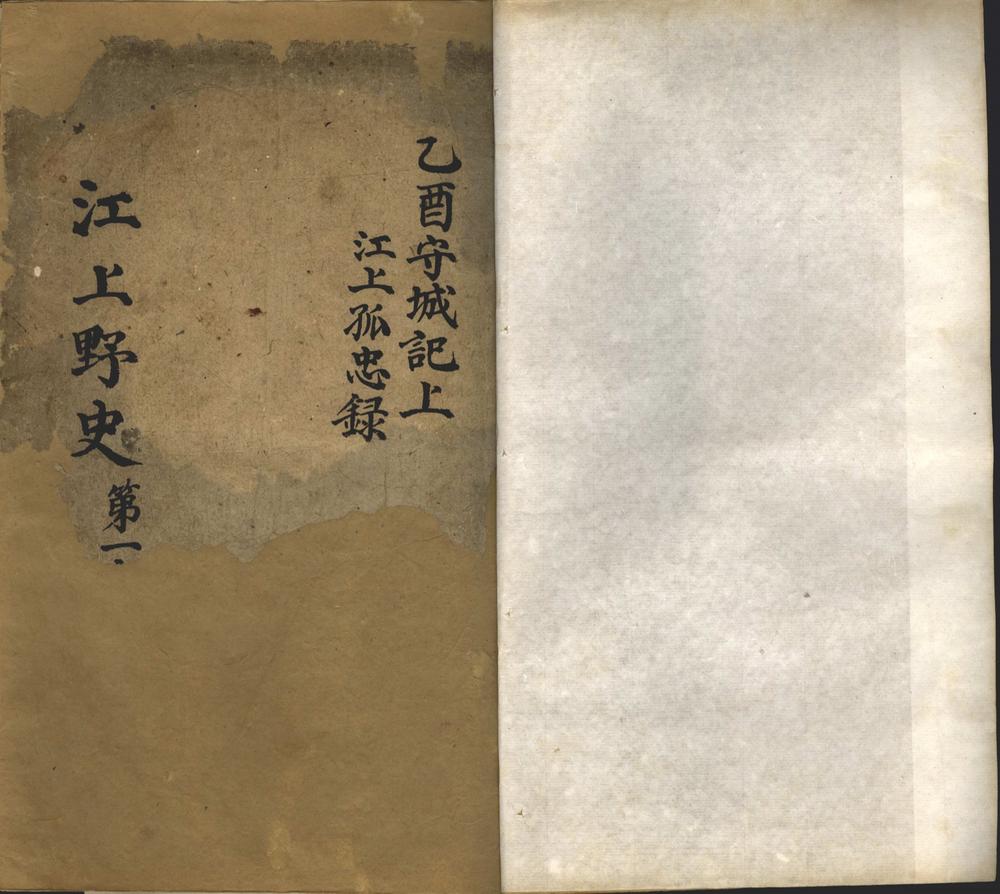 乙酉守城記上
江上孤忠録
江上野史第一